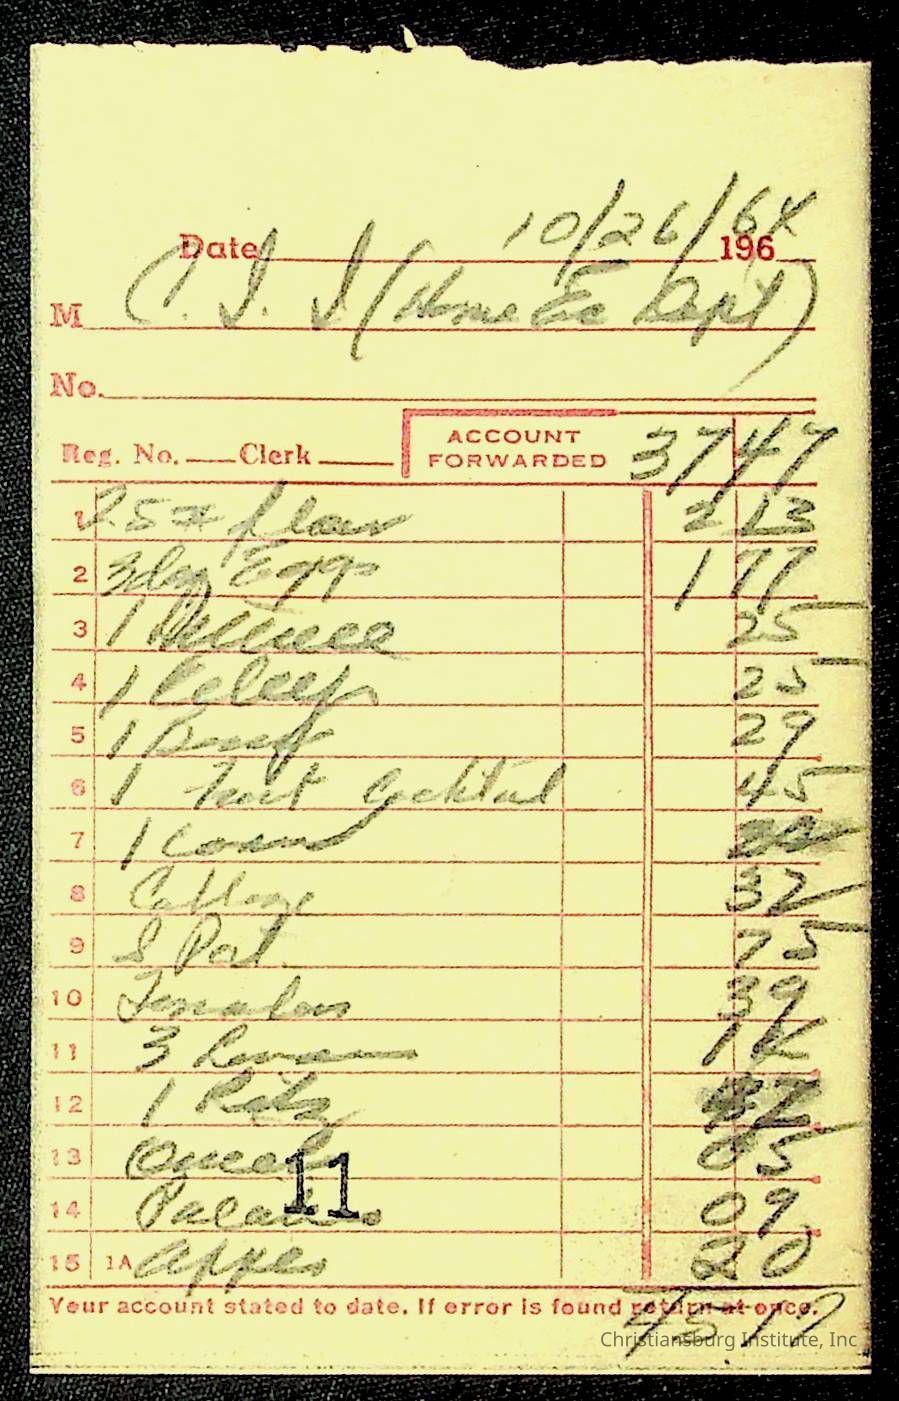 Date 10/26/64 196
M C. I. I (Home Ec Dept)
No.
Reg. No. Clerk ACCOUNT FORWARDED 37 47
1 25# flour 2 13
2 3 doz Eggs 1 77
3 1 25
4 1 Celery 25
5 1 29
6 1 Fruit Cocktail 45
7 1
8 Cabbage 32
9 S Pot. 75
10 Tomatoes 39
11 3
12 1 Ritz 37
13 05
14 09
15 1A Apples 20
11
Your account stated to date. If error is found return at once.
45.17
Christiansburg Institute, Inc